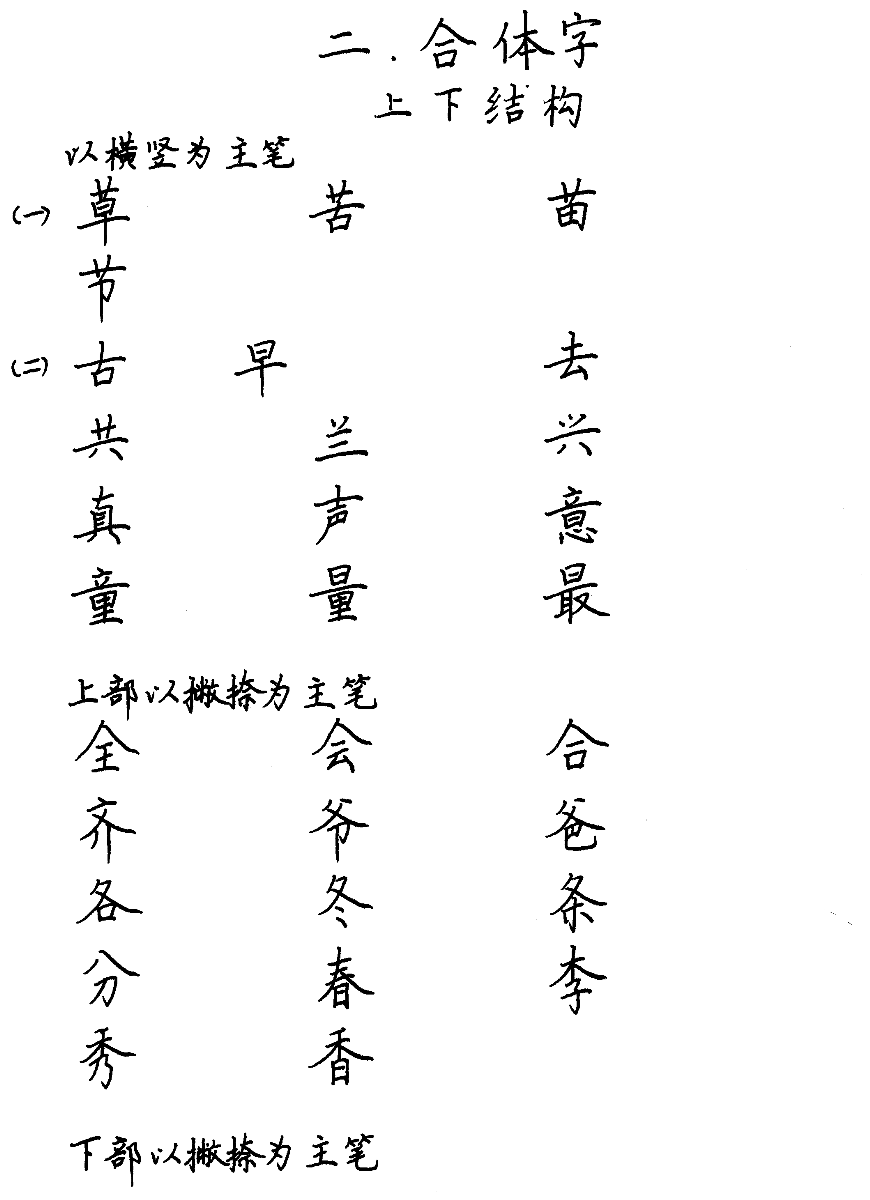 二.合体字
上下结构
以横竖为主笔
(一) 草 苦 苗
节
(二) 古 早 去
共 兰 兴
真 声 意
童 量 最
上部以撇捺为主笔
全 会 合
齐 爷 爸
各 冬 条
分 春 李
秀 香
下部以撇捺为主笔